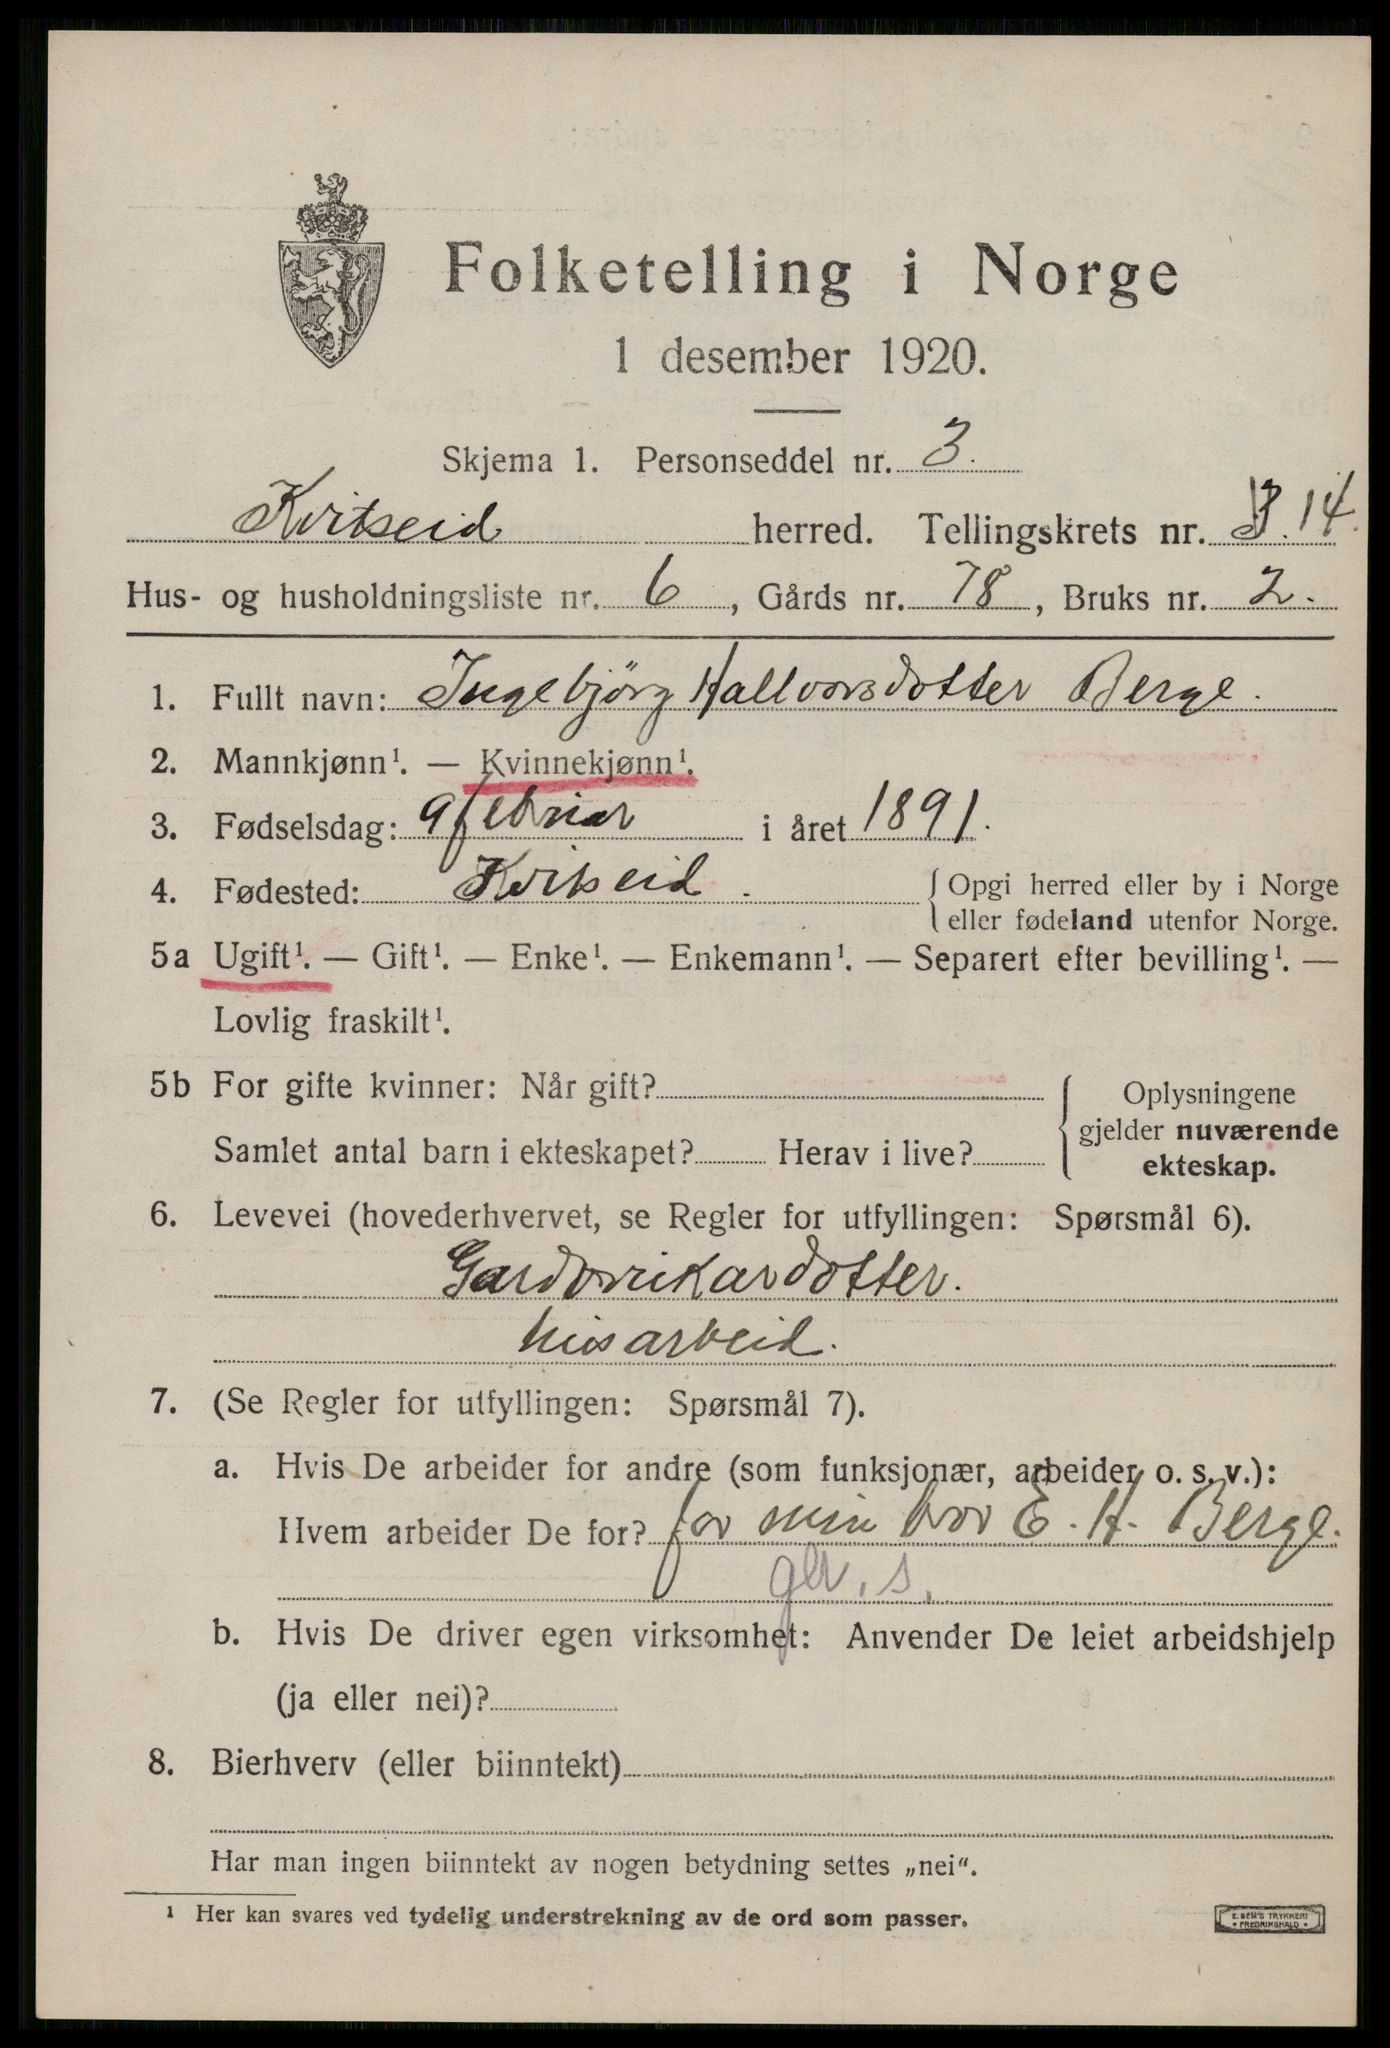 Folketelling i Norge
1 desember 1920.
Skjema 1. Personseddel nr. 3.
Kvitseid herred. Tellingskrets nr. 14.
Hus- og husholdningsliste nr. 6, Gårds nr. 78, Bruks nr. 2.
1. Fullt navn: Ingebjörg Hallvorsdotter Berge.
2. Mannkjønn¹. — Kvinnekjønn¹.
3. Fødselsdag: 9 februar i året 1891.
4. Fødested: Kvitseid. Opgi herred eller by i Norge
eller fødeland utenfor Norge.
5a Ugift¹. — Gift¹. — Enke¹. — Enkemann¹. — Separert efter bevilling¹. —
Lovlig fraskilt¹.
5b For gifte kvinner: Når gift? Oplysningene
gjelder nuværende
Samlet antal barn i ekteskapet? Herav i live?
ekteskap.
6. Levevei (hovederhvervet, se Regler for utfyllingen: Spørsmål 6).
Gardbrukardotter.
husarbeid.
7. (Se Regler for utfyllingen: Spørsmål 7).
a. Hvis De arbeider for andre (som funksjonær, arbeider o. s. v.):
Hvem arbeider De for? for min bror E. H. Berge.
b. Hvis De driver egen virksomhet: Anvender De leiet arbeidshjelp
(ja eller nei)?
8. Bierhverv (eller biinntekt)
Har man ingen biinntekt av nogen betydning settes „nei“.
¹ Her kan svares ved tydelig understrekning av de ord som passer.
E. SEM'S TRYKKERI
• FREDRIKSHALD •